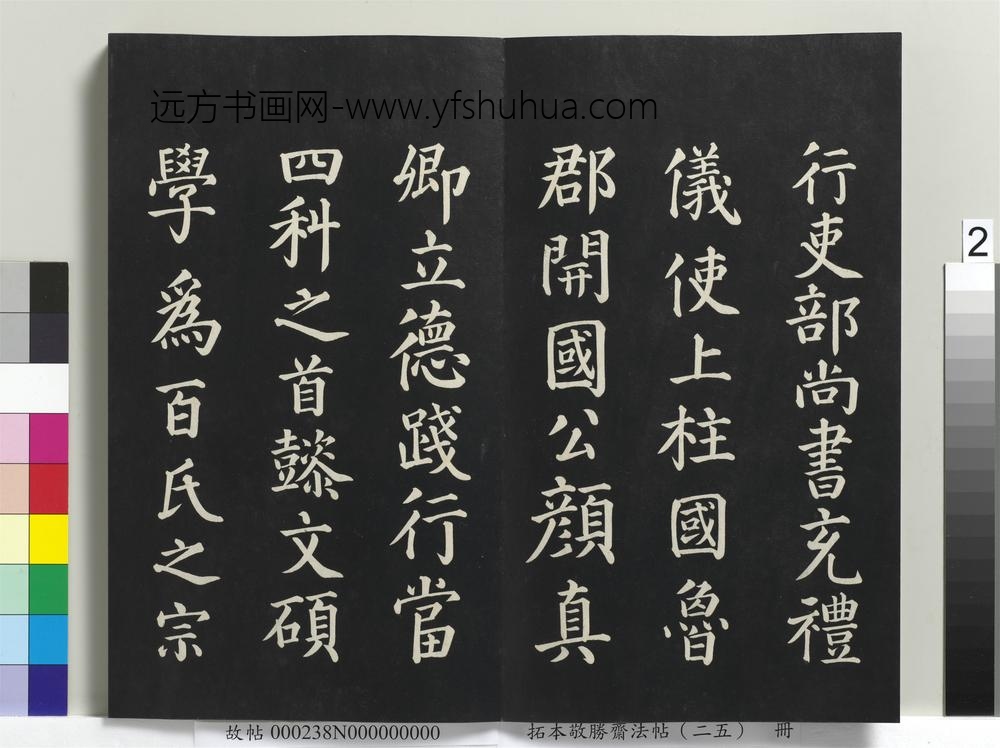 远方书画网-www.yfshuhua.com
行吏部尚書充禮
儀使上柱國魯
郡開國公顔真
卿立德踐行當
四科之首懿文碩
學為百氏之宗
2
故帖 000238N000000000
拓本敬勝齋法帖（二五） 冊